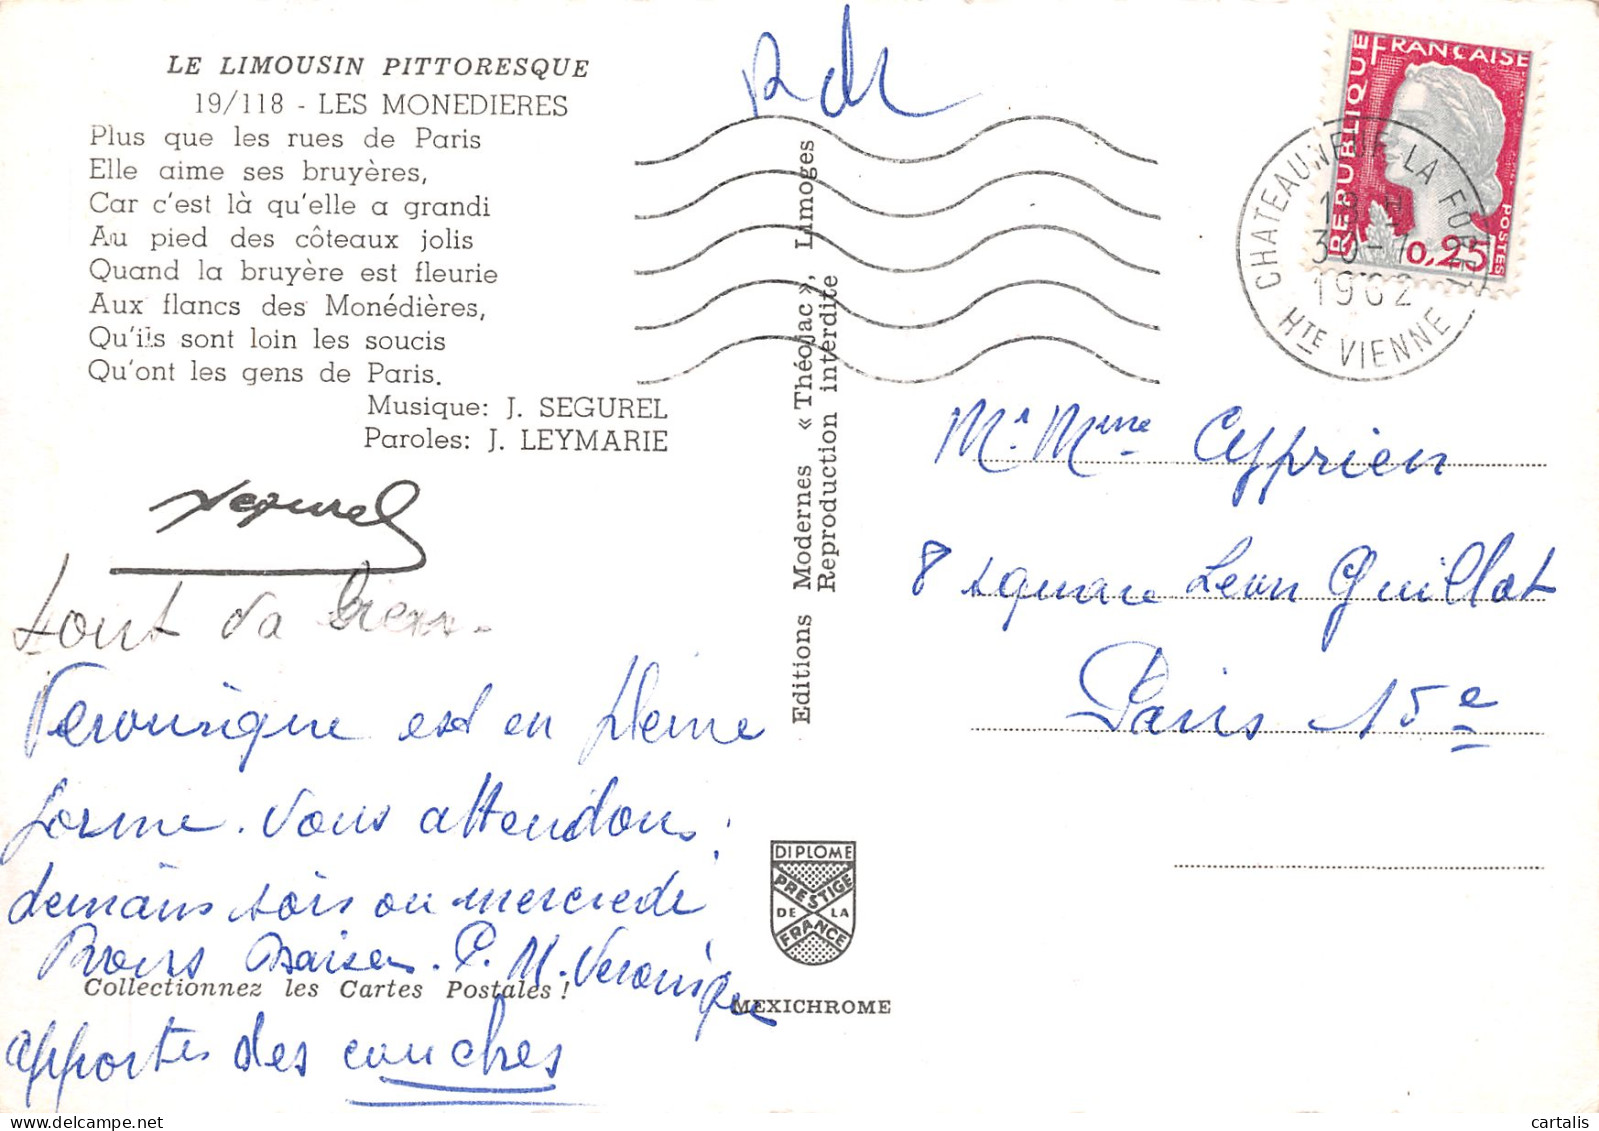 LE LIMOUSIN PITTORESQUE
19/118 - LES MONEDIERES
Plus que les rues de Paris
Elle aime ses bruyères,
Car c'est là qu'elle a grandi
Au pied des côteaux jolis
Quand la bruyère est fleurie
Aux flancs des Monédières,
Qu'ils sont loin les soucis
Qu'ont les gens de Paris.
Musique: J. SEGUREL
Paroles: J. LEYMARIE
Segurel
tout va bien.
Veronique est en pleine
forme. Vous attendons
demain soir ou mercredi
Bons Baisers. P. M. Veronique
Collectionnez les Cartes Postales !
apportes des couches
Editions Modernes « Théojac », Limoges
Reproduction interdite
DIPLOME
PRESTIGE
DE LA
FRANCE
MEXICHROME
REPUBLIQUE
FRANÇAISE
POSTES
0,25
CHATEAUNEUF LA FORET
18 H
30-7
1962
HTE VIENNE
Mr Mme Cyprien
8 square Leon Guillot
Paris 15e
cartalis